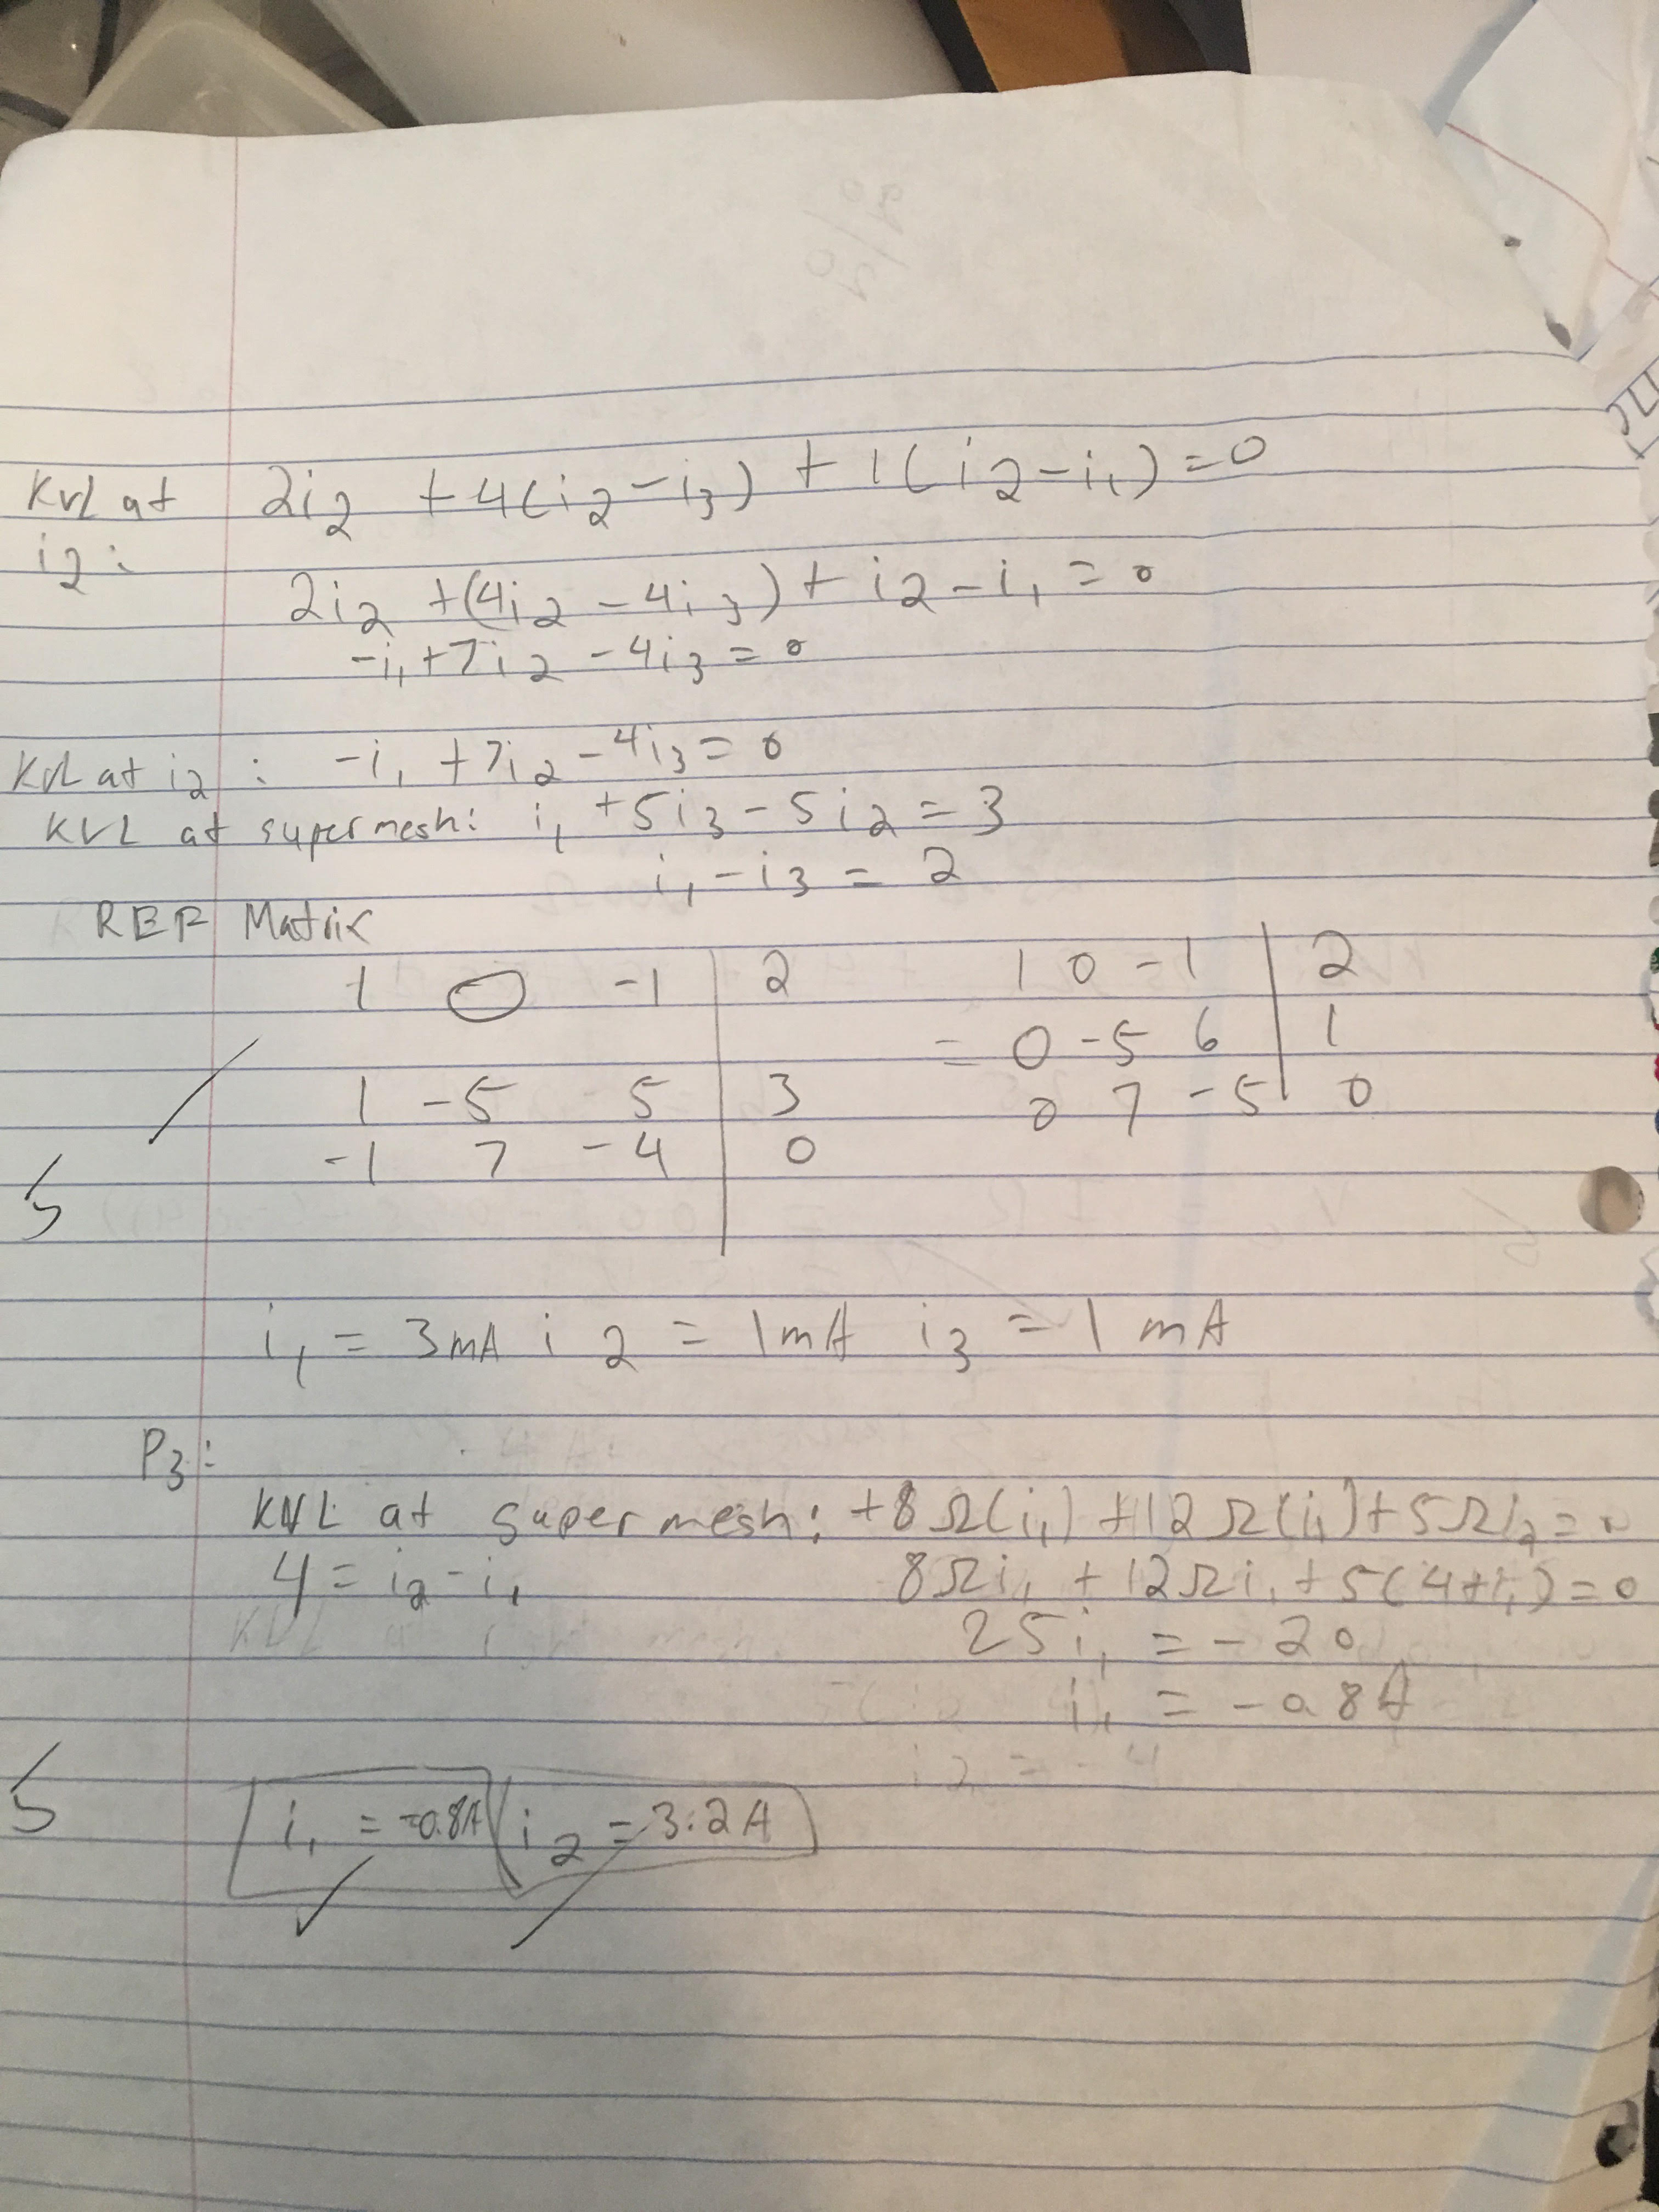 KVL at 2i2 + 4(i2 - i3) + 1(i2 - i1) = 0
i2:
2i2 + (4i2 - 4i3) + i2 - i1 = 0
-i1 + 7i2 - 4i3 = 0
KVL at i2: -i1 + 7i2 - 4i3 = 0
KVL at supermesh: i1 + 5i3 - 5i2 = 3
i1 - i3 = 2
REF Matrix
1 0 -1 | 2 1 0 -1 | 2
= 0 -5 6 | 1
1 -5 5 | 3 0 7 -5 | 0
-1 7 -4 | 0
5
i1 = 3mA i2 = 1mA i3 = 1 mA
P3:
KVL at supermesh: +8Ω(i1) + 12Ω(i1) + 5Ωi2 = 0
4 = i2 - i1 8Ωi1 + 12Ωi1 + 5(4+i1) = 0
KVL at mesh
25i1 = -20
i1 = -0.8A
i2 = -4
5
i1 = -0.8A i2 = 3.2A